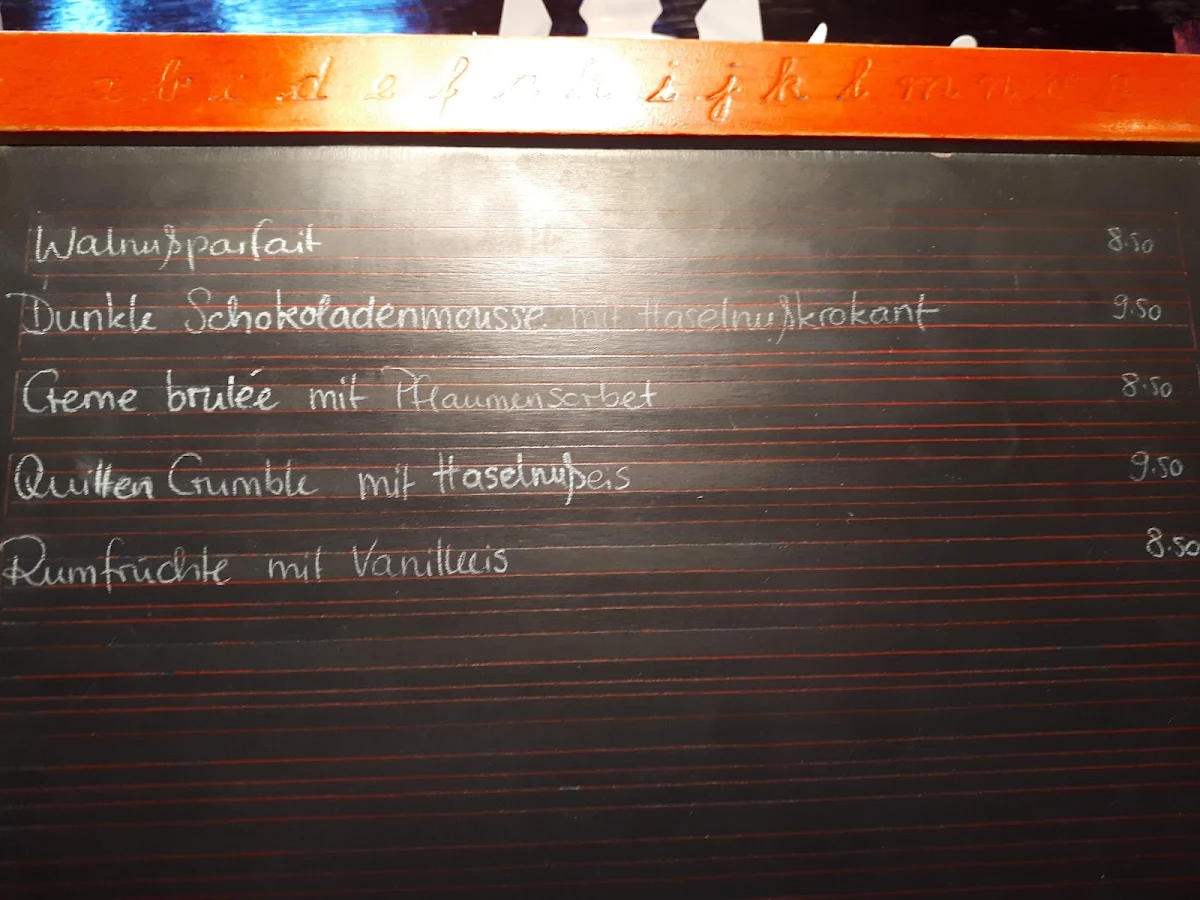 a b c d e f g h i j k l m n o p
Walnußparfait 8.50
Dunkle Schokoladenmousse mit Haselnußkrokant 9.50
Creme brulée mit Pflaumensorbet 8.50
Quitten Crumble mit Haselnußeis 9.50
Rumfrüchte mit Vanilleeis 8.50